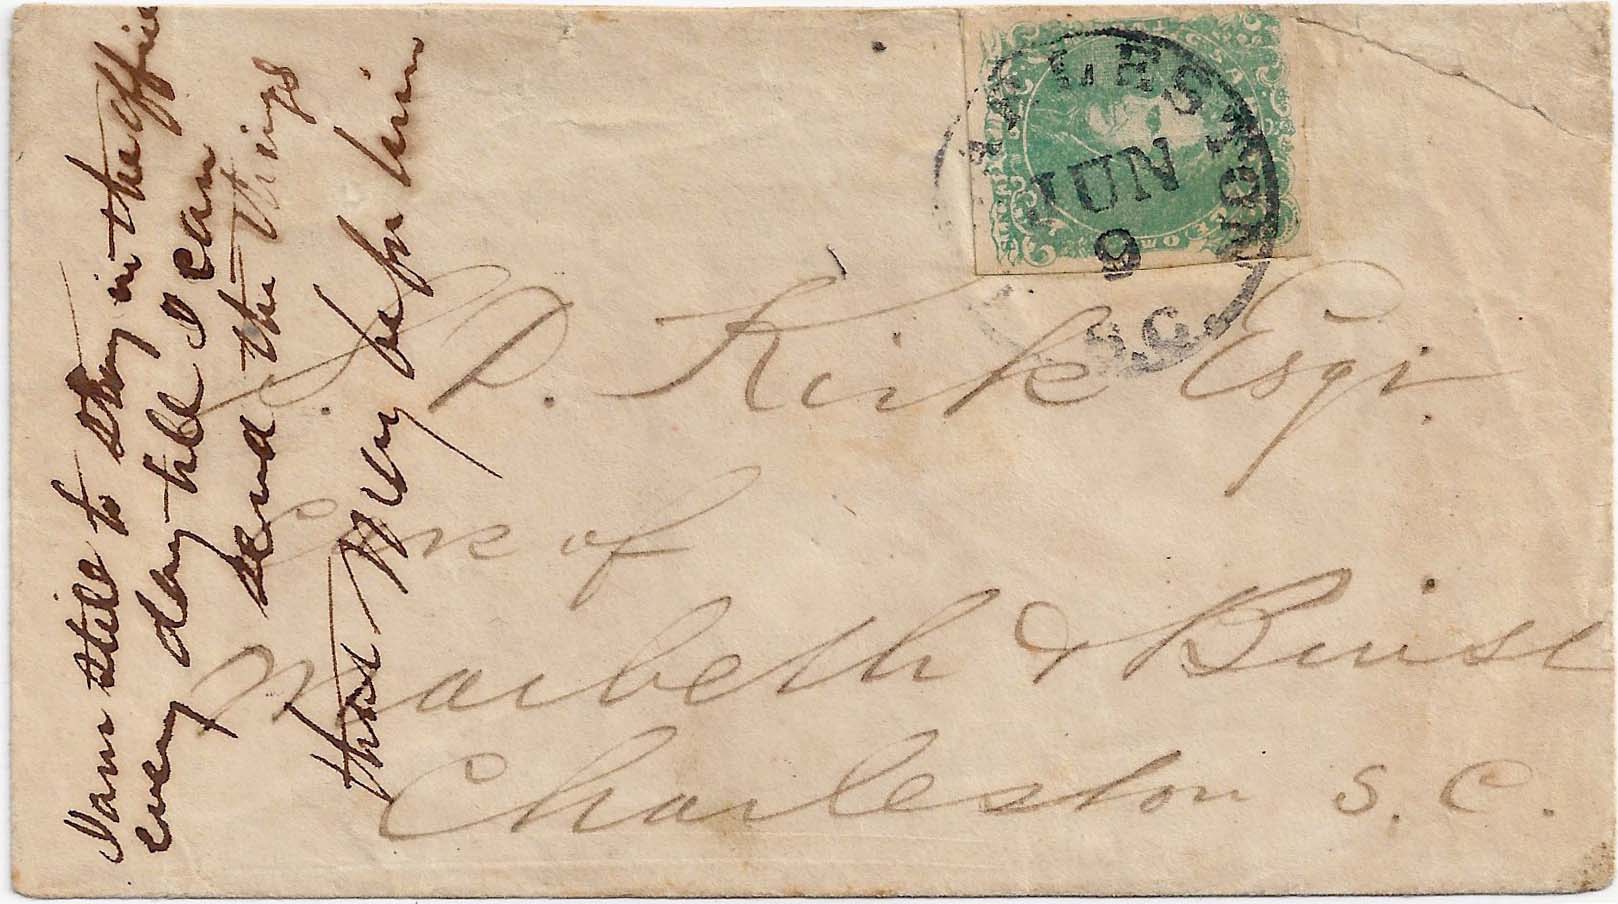 I am still to stay in the office
every day till I can
send the things
that may befor him
CHARLESTON
JUN
9
S.C.
S. D. Kirk Esqr.
Care of
Macbeth & Buist
Charleston S. C.